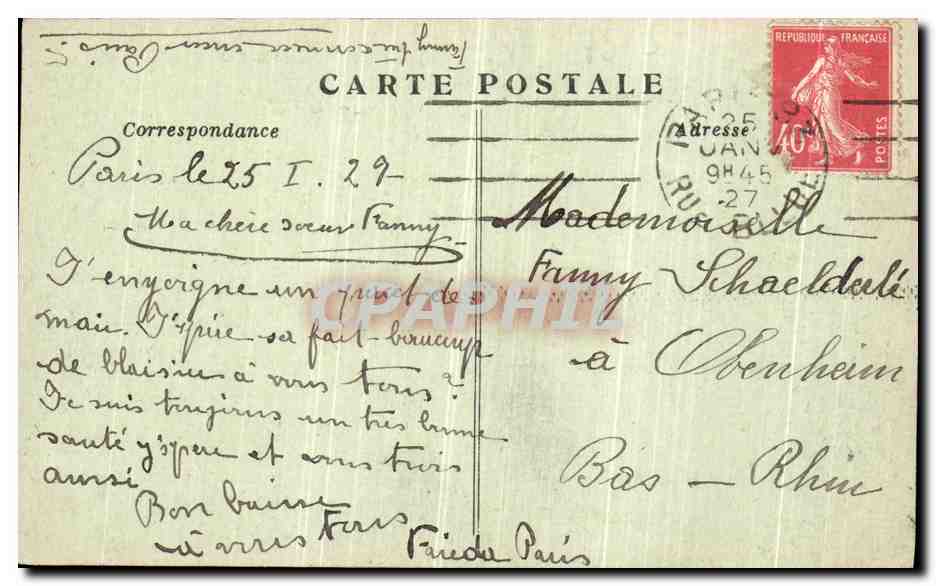 CARTE POSTALE
Correspondance
Adresse
REPUBLIQUE FRANÇAISE
40c
POSTES
PARIS
25
JAN
9H45
27
RU
Paris le 25 I. 29
Ma chère soeur Fanny
J'envoigne un de
mai. J'spüe sa fait beaucup
de blaisius à vous tous?
Je suis toujirus un très bunne
santé y'spere et vous trois
aussi
Bon baisse
à vous tous
Frieda Paris
Mademoiselle
Fanny Schaelderlé
à Obenheim
Bas-Rhin
CPAPHIL